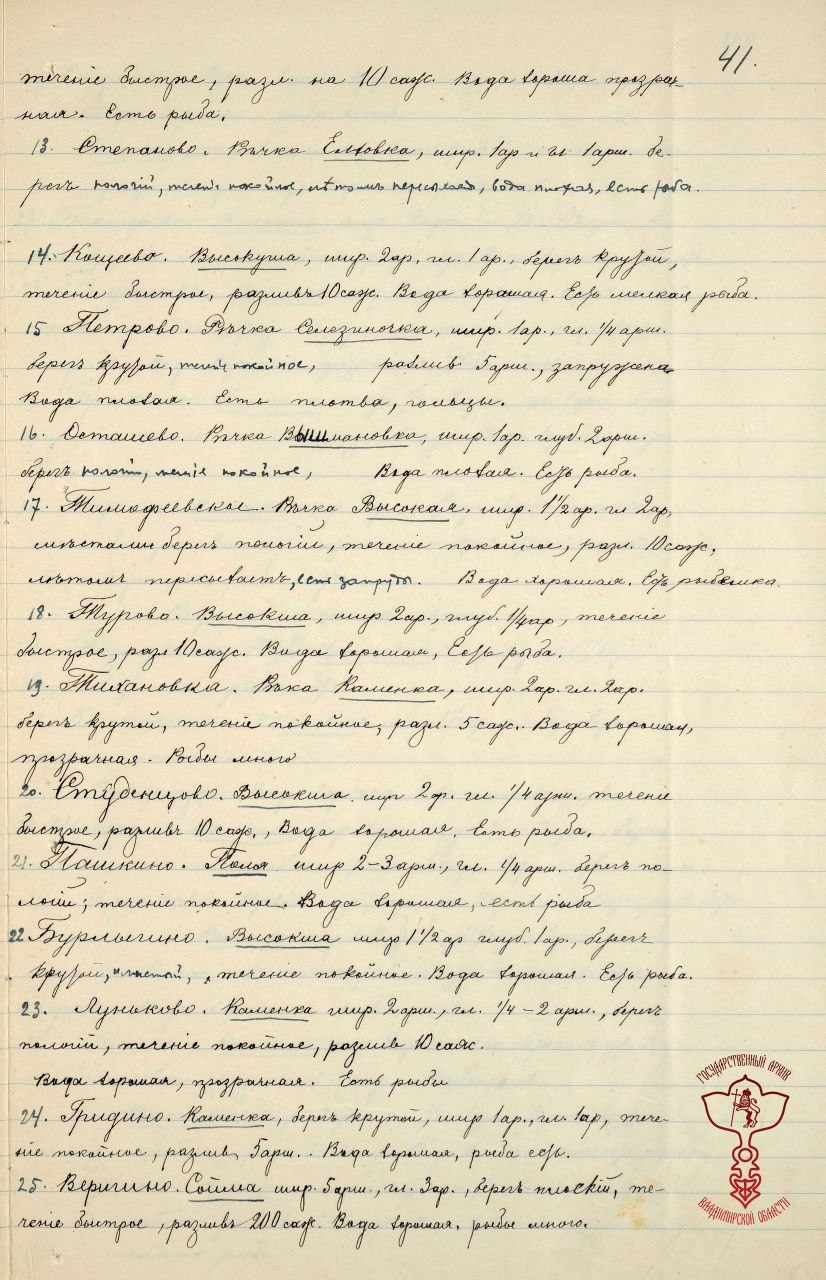 41.
теченіе быстрое, разл. на 10 саж. Вода хороша прозрач-
ная. Есть рыба.
13. Степаново. Рѣчка Елховка, шир. 1 ар 1 арш. бе-
регъ пологій, теченіе покойное, лѣтомъ пересыхаетъ, вода плохая, есть рыба.
14. Кощеево. Высокуша, шир. 2 ар, гл. 1 ар., берегъ крутой,
теченіе быстрое, разливъ 10 саж. Вода хорошая. Есть мелкая рыба.
15 Петрово. Рѣчка Селезиночка, шир. 1 ар., гл. 1/4 арш.
берегъ крутой, теченіе покойное, разлив 5 арш., запружена
Вода плохая. Есть плотва, гольцы.
16. Осташево. Рѣчка Вышмановка, шир. 1 ар. глуб. 2 арш.
берегъ пологій, теченіе покойное, Вода плохая. Есть рыба.
17. Тимофеевское. Рѣчка Высокая, шир. 1 1/2 ар. гл 2 ар,
мѣстами берегъ пологій, теченіе покойное, разл. 10 саж,
лѣтомъ пересыхаетъ, есть запруды. Вода хорошая. Есть рыбешка.
18. Турово. Высокша, шир 2 ар., глуб. 1/4 ар, теченіе
быстрое, разл 10 саж. Вода хорошая, Есть рыба.
19. Тихановка. Рѣка Каменка, шир. 2 ар. гл. 2 ар.
берегъ крутой, теченіе покойное, разл. 5 саж. Вода хорошая,
прозрачная. Рыбы много
20. Студенцово. Высокша. шир 2 ар. гл. 1/4 арш. теченіе
быстрое, разливъ 10 саж., Вода хорошая. Есть рыба.
21. Пашкино. Поля шир 2-3 арш., гл. 1/4 арш. берегъ по-
логій; теченіе покойное. Вода хорошая, есть рыба
22. Бурлыгино. Высокша шир 1 1/2 ар глуб. 1 ар., берегъ
крутой, теченіе покойное. Вода хорошая. Есть рыба.
23. Луньково. Каменка шир. 2 арш., гл. 1/4 - 2 арш., берегъ
пологій, теченіе покойное, разлив 10 саж.
Вода хорошая, прозрачная. Есть рыбы
24. Гридино. Каменка, берегъ крутой, шир 1 ар., гл. 1 ар, тече-
ніе покойное, разлив, 5 арш.. Вода хорошая, рыба есть.
25. Веригино. Сойма шир. 5 арш., гл. 3 ар., берегъ плоскій, те-
ченіе быстрое, разливъ 200 саж. Вода хорошая, рыбы много.
ГОСУДАРСТВЕННЫЙ АРХИВ
ВЛАДИМИРСКОЙ ОБЛАСТИ